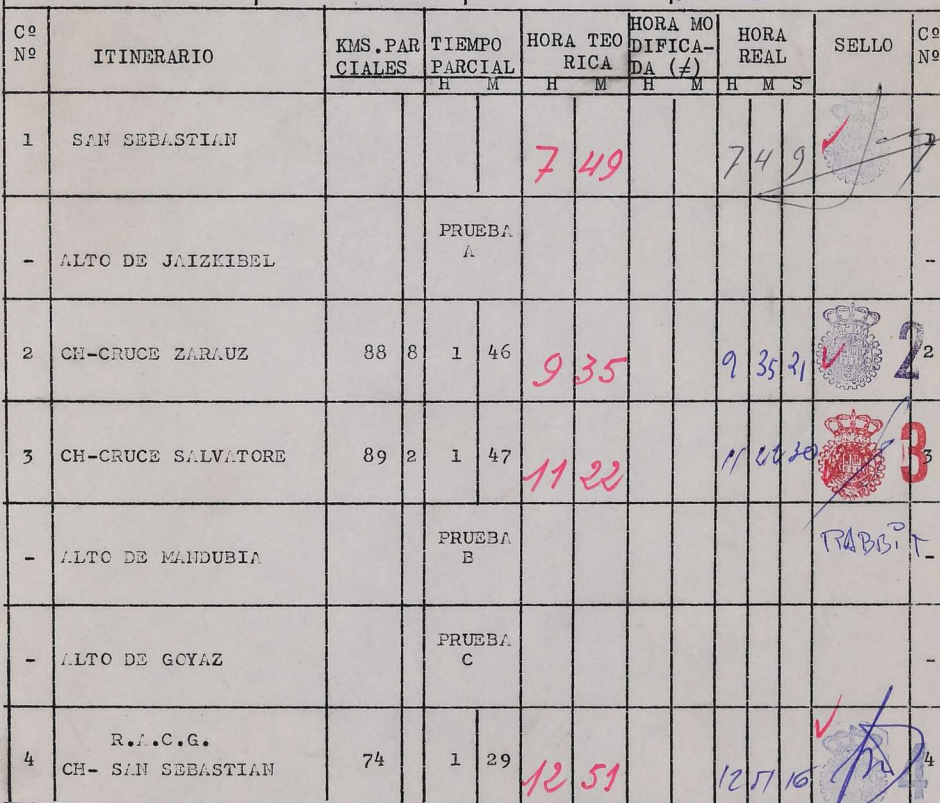 Cº Nº ITINERARIO KMS.PAR CIALES TIEMPO PARCIAL HORA TEO RICA HORA MO DIFICA- DA (≠) HORA REAL SELLO Cº Nº
H M H M H M H M S
1 SAN SEBASTIAN 7 49 7 4 9
- ALTO DE JAIZKIBEL PRUEBA A -
2 CH-CRUCE ZARAUZ 88 8 1 46 9 35 9 35 21 2 2
3 CH-CRUCE SALVATORE 89 2 1 47 11 22 11 22 3 3
- ALTO DE MANDUBIA PRUEBA B RABBIT -
- ALTO DE GOYAZ PRUEBA C -
4 R.A.C.G. CH- SAN SEBASTIAN 74 1 29 12 51 12 51 16 4 4